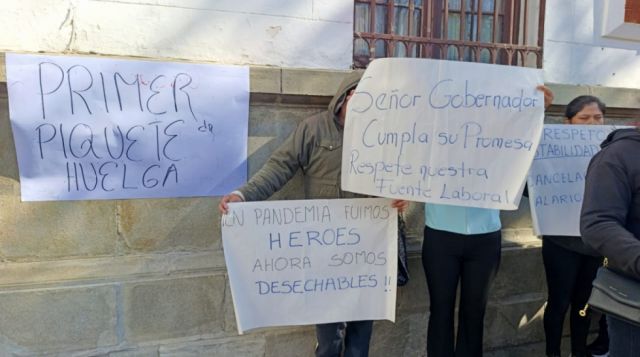 PRIMER
PIQUETE de
HUELGA
Señor Gobernador
Cumpla su Promesa
Respete nuestra
Fuente Laboral
EN PANDEMIA FUIMOS
HEROES
AHORA SOMOS
DESECHABLES !!
RESPETO
STABILIDAD
CANCELAC
ALARIO